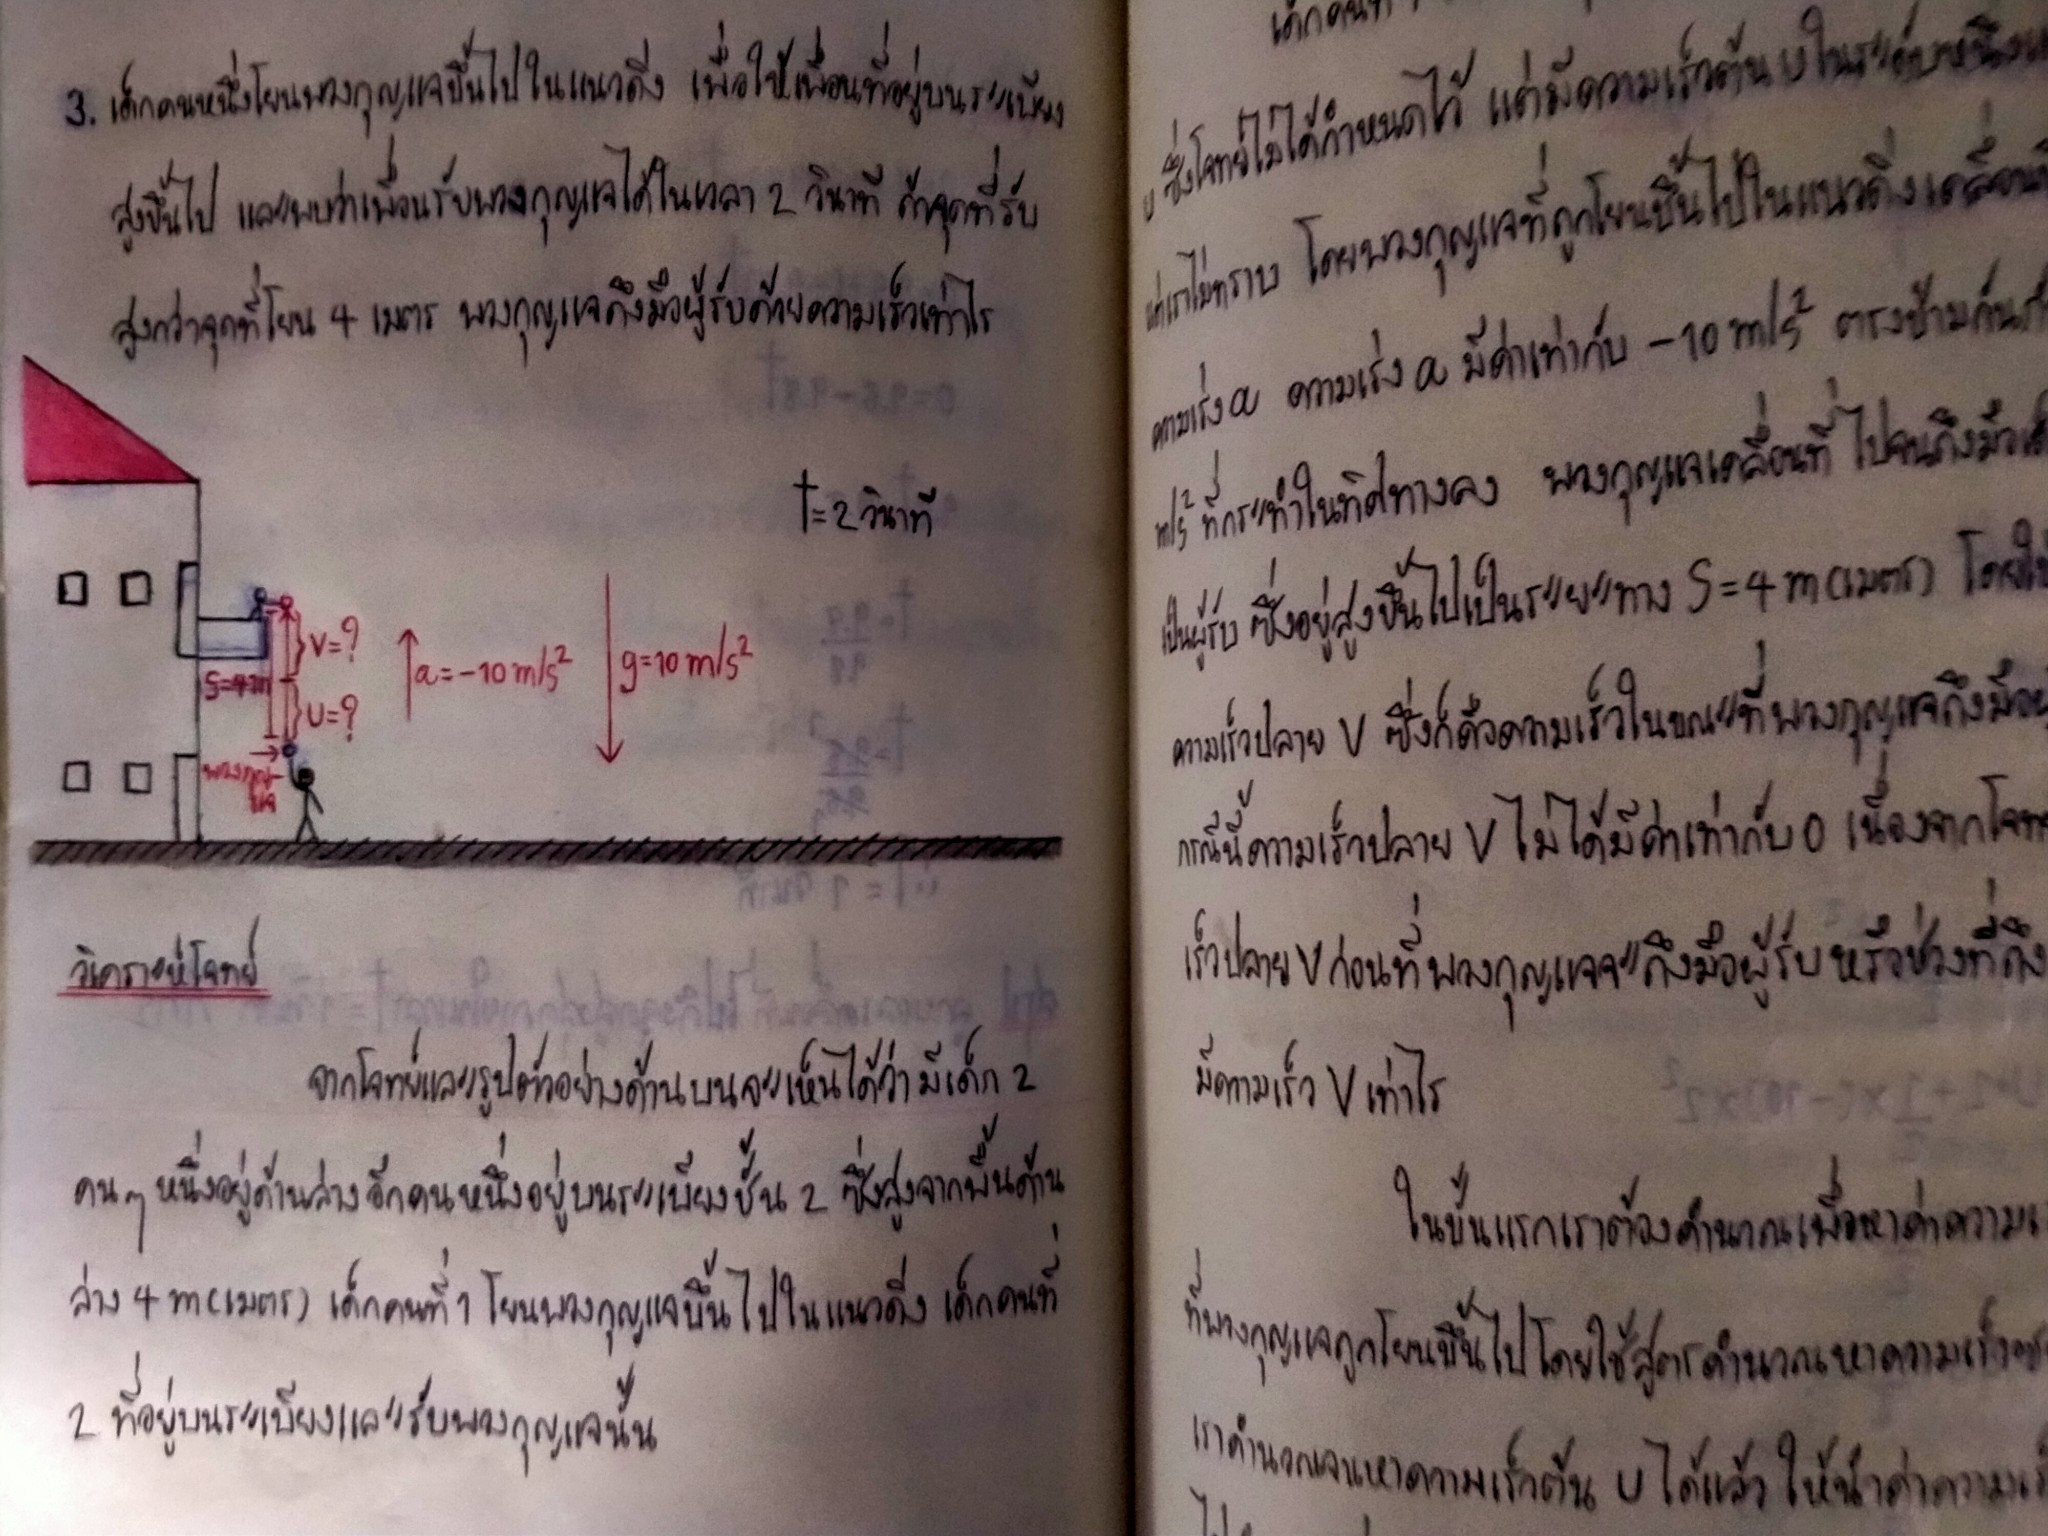 3. เด็กคนหนึ่งโยนพวงกุญแจขึ้นไปในแนวดิ่ง เพื่อให้เพื่อนที่อยู่บนระเบียง
สูงขึ้นไป และพบว่าเพื่อนรับพวงกุญแจได้ในเวลา 2 วินาที ถ้าจุดที่รับ
สูงกว่าจุดที่โยน 4 เมตร พวงกุญแจถึงมือผู้รับด้วยความเร็วเท่าไร
t=2 วินาที
V=?
a=-10 m/s²
g=10 m/s²
S=4m
U=?
พวงกุญ-
แจ
วิเคราะห์โจทย์
จากโจทย์และรูปตัวอย่างด้านบนจะเห็นได้ว่า มีเด็ก 2
คนๆ หนึ่งอยู่ด้านล่าง อีกคนหนึ่งอยู่บนระเบียงชั้น 2 ซึ่งสูงจากพื้นด้าน
ล่าง 4 m (เมตร) เด็กคนที่ 1 โยนพวงกุญแจขึ้นไปในแนวดิ่ง เด็กคนที่
2 ที่อยู่บนระเบียงและรับพวงกุญแจนั้น
เด็กคนที่
U ซึ่งโจทย์ไม่ได้กำหนดไว้ แต่มีความเร็วต้น U ในระดับหนึ่ง
แต่เราไม่ทราบ โดยพวงกุญแจที่ถูกโยนขึ้นไปในแนวดิ่งเคลื่อนที่
ความเร่ง a ความเร่ง a มีค่าเท่ากับ -10 m/s² ตรงข้ามกัน
m/s² ที่กระทำในทิศทางลง พวงกุญแจเคลื่อนที่ ไปจนถึงมือ
เป็นผู้รับ ซึ่งอยู่สูงขึ้นไปเป็นระยะทาง S=4 m (เมตร) โดย
ความเร็วปลาย V ซึ่งก็คือความเร็วในขณะที่พวงกุญแจถึงมือ
กรณีนี้ความเร็วปลาย V ไม่ได้มีค่าเท่ากับ 0 เนื่องจาก
เร็วปลาย V ก่อนที่พวงกุญแจจะถึงมือผู้รับ หรือช่วงที่ถึง
มีความเร็ว V เท่าไร
ในขั้นแรกเราต้องคำนวณเพื่อหาค่าความ
ที่พวงกุญแจถูกโยนขึ้นไปโดยใช้สูตรคำนวณหาความเร็ว
เราคำนวณจนหาความเร็วต้น U ได้แล้ว ให้นำค่าความ